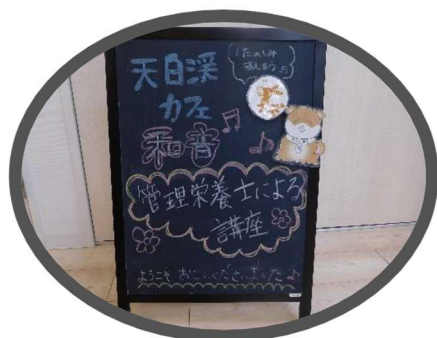 天白渓
カフェ
和音
たのしみ
ましょう
管理栄養士による
講座
ようこそ おこしくださいました♪